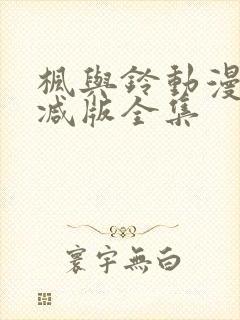 楓與鈴動漫
减版全集
寰宇無白